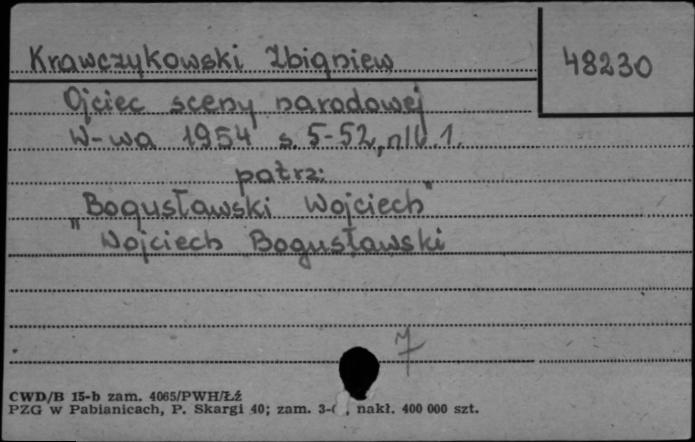 Krawczykowski Zbigniew
48230
Ojciec sceny narodowej
W-wa 1954 s. 5-52, nlb. 1.
patrz:
"Bogusławski Wojciech"
Wojciech Bogusławski
7
CWD/B 15-b zam. 4065/PWH/Łź
PZG w Pabianicach, P. Skargi 40; zam. 3- , nakł. 400 000 szt.